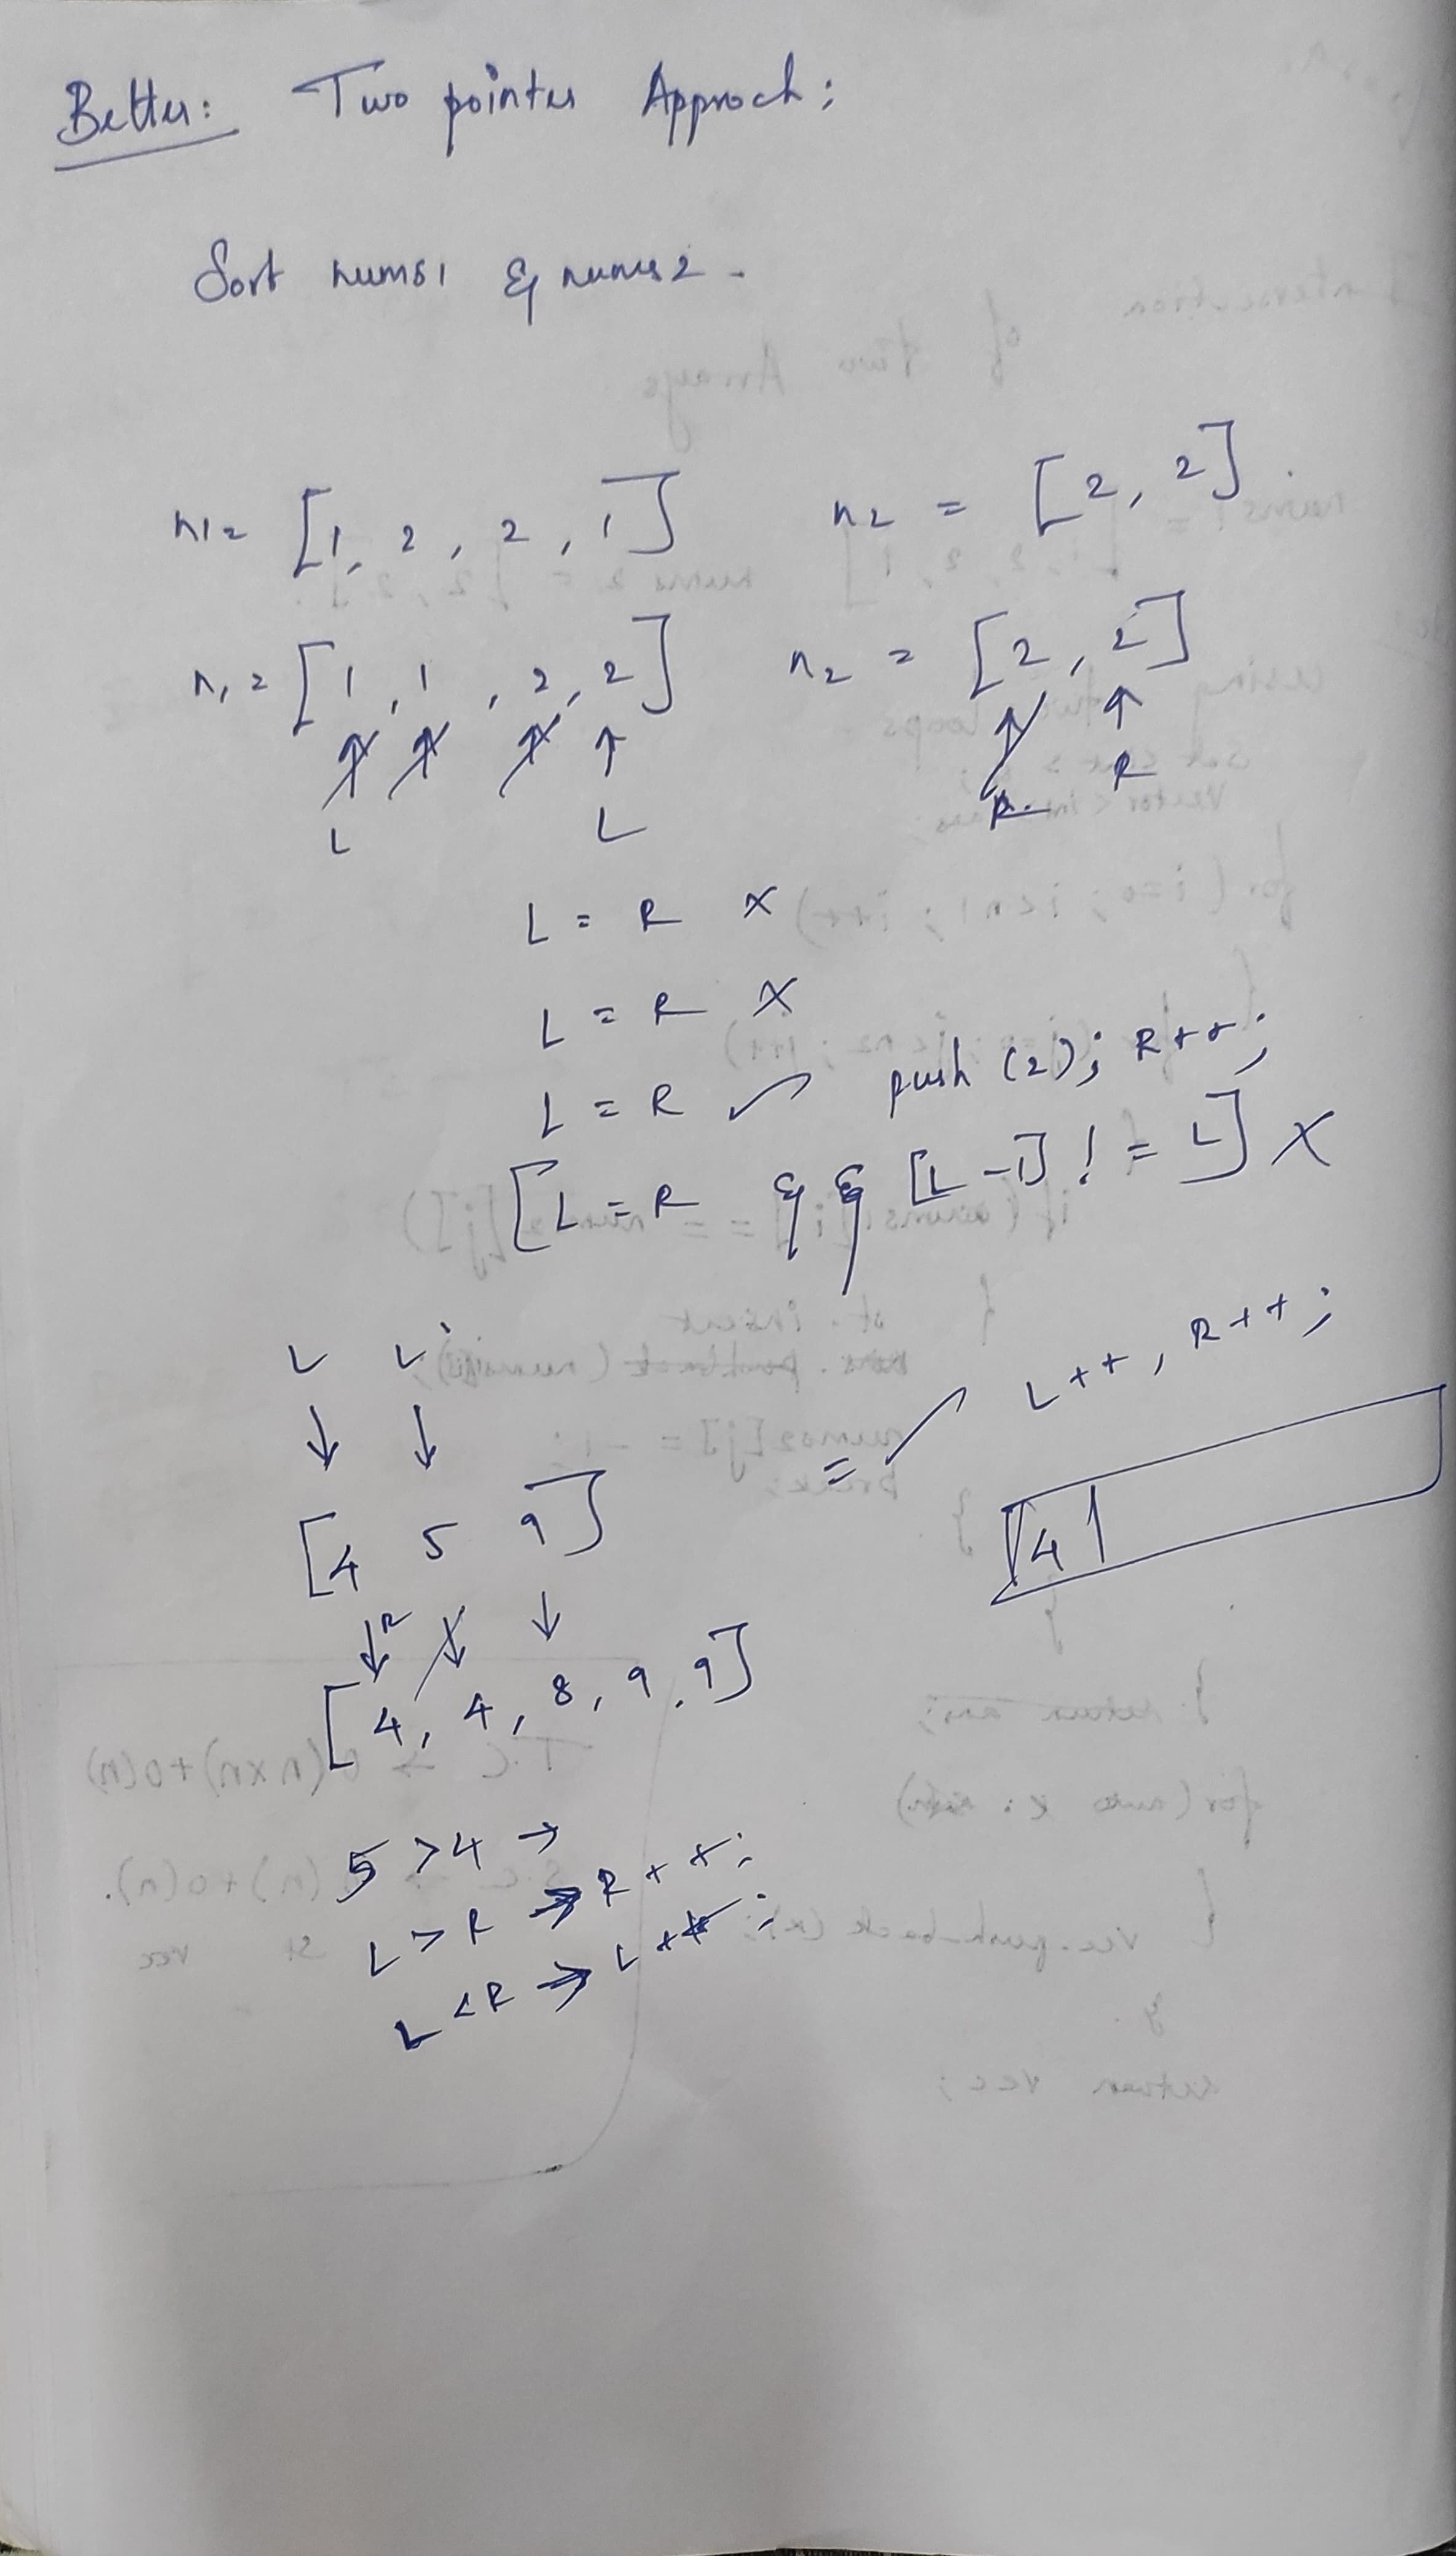 Better: Two pointer Approch:
Sort nums1 & nums2.
n1 = [1, 2, 2, 1] n2 = [2, 2].
n1 = [1, 1, 2, 2] n2 = [2, 2]
L L R R
L = R X
L = R X
L = R ✓ push (2); R++;
[L = R && [L-1] != L] X
L L
= ✓ L++, R++;
[4 5 9]
4
R
[4, 4, 8, 9, 9]
5 > 4 →
L > R → R++;
L < R → L++;